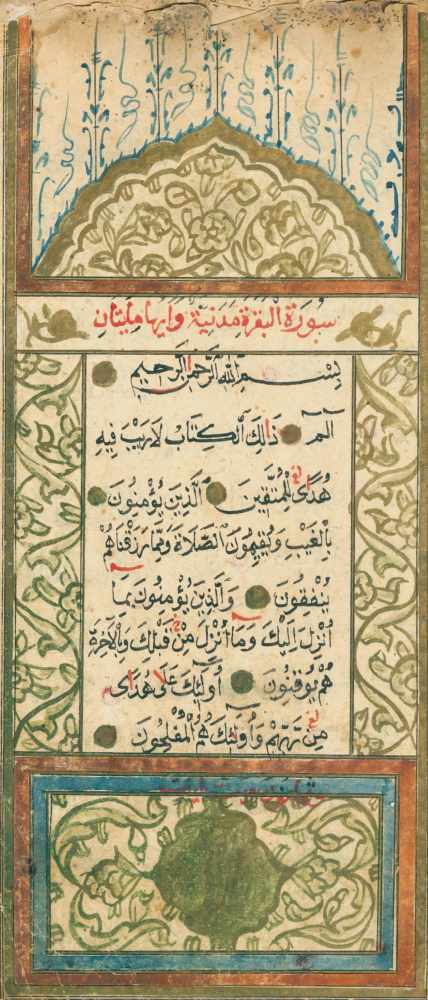 سُورَةُ الْبَقَرَةِ مَدَنِيَّةٌ وَايهَا مِايتَانِ
بِسْمِ اللهِ الرَّحْمٰنِ الرَّحِيمِ
الٓمٓ ذَالِكَ الْكِتَابُ لَارَيْبَ فِيهِ
هُدًى لِلْمُتَّقِينَ الَّذِينَ يُؤْمِنُونَ
بِالْغَيْبِ وَيُقِيمُونَ الصَّلَاةَ وَمِمَّا رَزَقْنَاهُمْ
يُنْفِقُونَ وَالَّذِينَ يُؤْمِنُونَ بِمَا
اُنْزِلَ اِلَيْكَ وَمَا اُنْزِلَ مِنْ قَبْلِكَ وَبِالْاٰخِرَةِ
هُمْ يُوقِنُونَ اُولٰٓئِكَ عَلٰى هُدًى
مِنْ رَبِّهِمْ وَاُولٰٓئِكَ هُمُ الْمُفْلِحُونَ